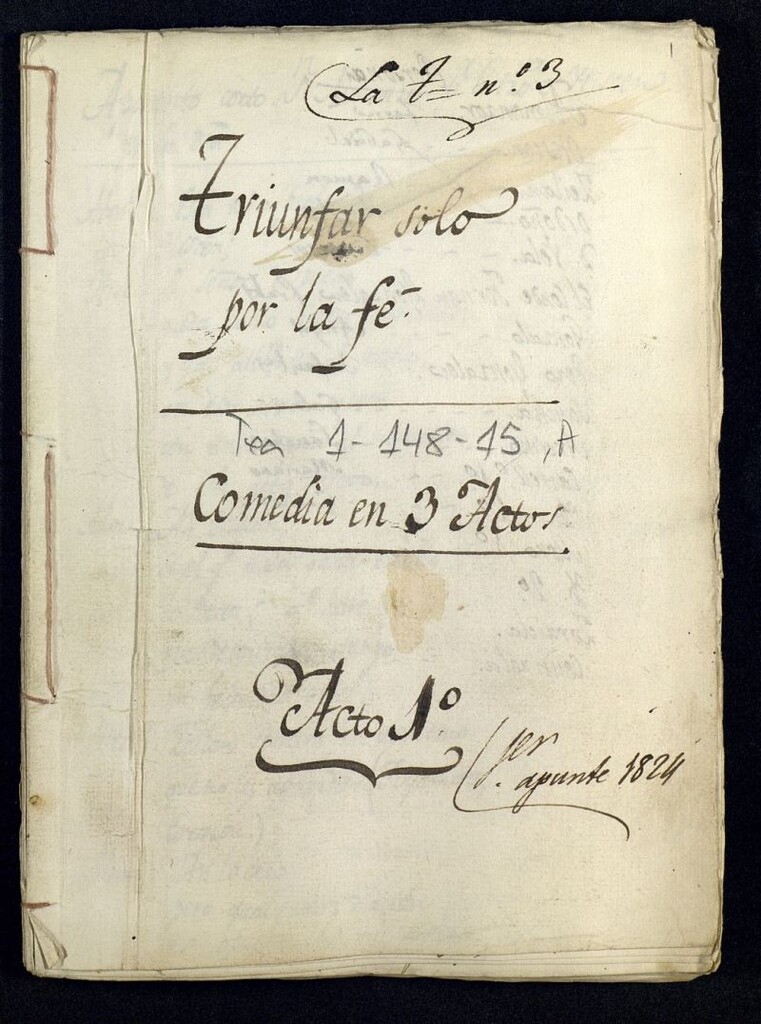 La T= nº. 3
1
Triunfar solo
por la fé.
Tea 1-148-15, A
Comedia en 3 Actos
Acto 1º
1er
apunte 1824